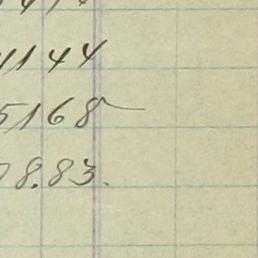 4144
5168
78.83.